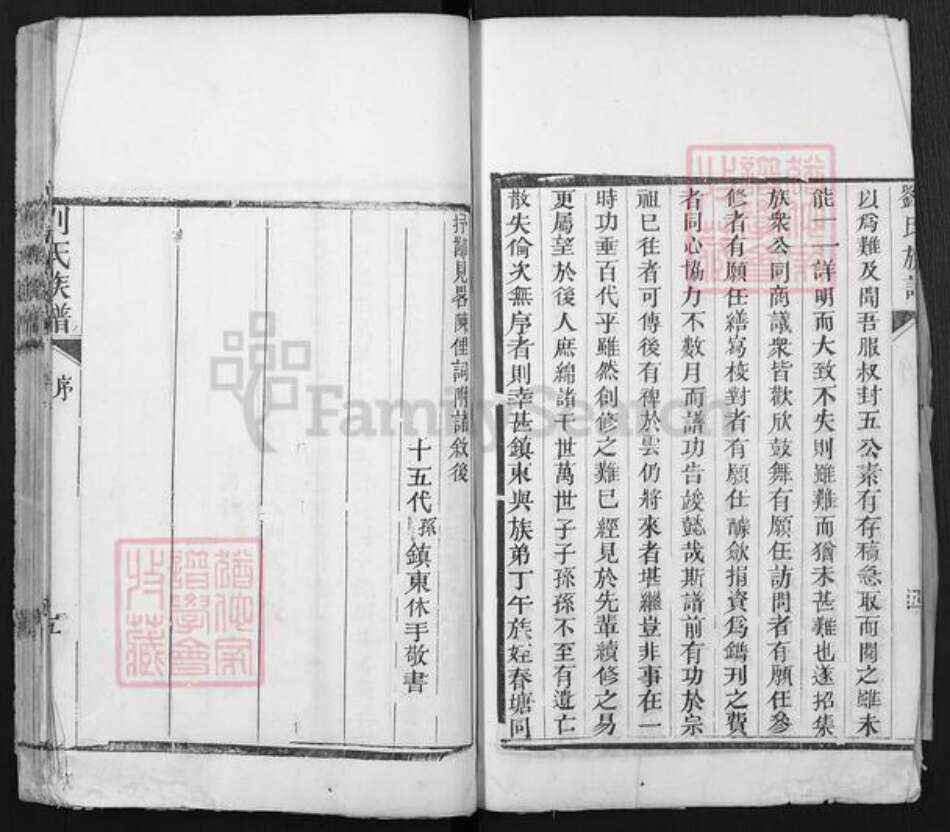 劉氏族譜
以爲難及聞吾服叔封五公素有存積急取而閱之雖未
能一一詳明而大致不失則雖難而猶未甚難也遂招集
族衆公同商議衆皆歡欣鼓舞有願任訪問者有願任參
修者有願任繕寫校對者有願任醵歛捐資爲鐫刊之費
者同心協力不數月而譜功告竣懿哉斯譜前有功於宗
祖已往者可傳後有裨於雲仍將來者堪繼豈非事在一
時功垂百代乎雖然創修之難已經見於先輩續修之易
更屬望於後人庶綿諸千世萬世子子孫孫不至有遺亡
散失倫次無序者則幸甚鎮東與族弟丁午族姪春塘同
抒鄙見畧陳俚詞附諸敘後
十五代孫鎮東休手敬書
劉氏族譜
序
FamilySearch